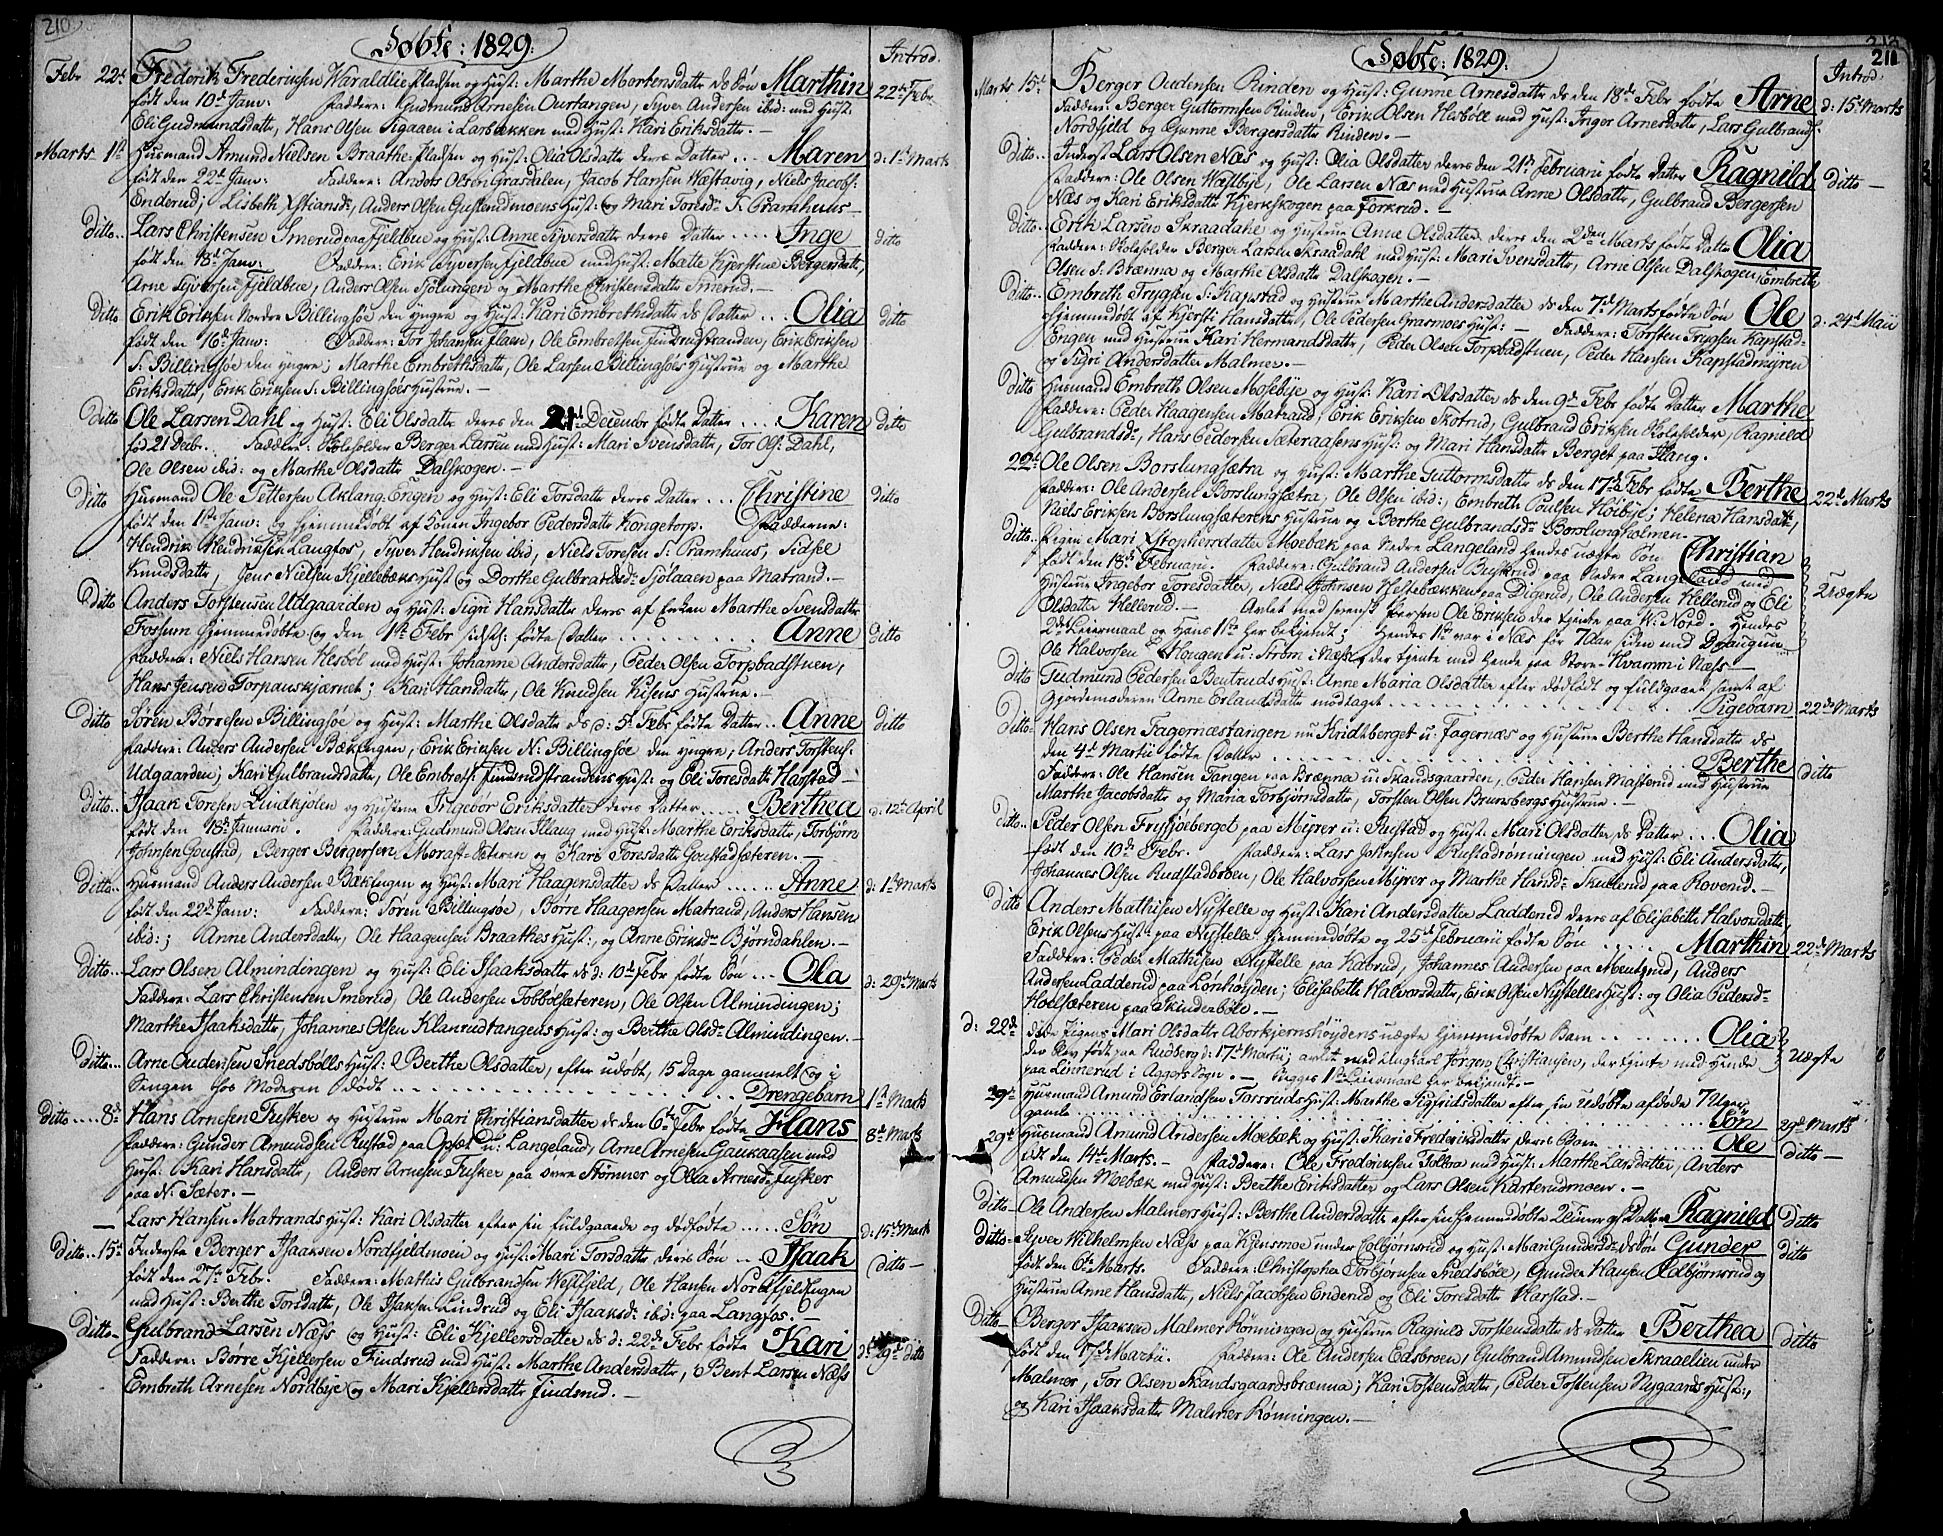 210
Døbte: 1829.
Introd.
Febr 22d Frederik Fredericksen Waraldlie Pladsen og Hust: Marthe Mortensdatter ds Søn Marthin 22d Febr
født den 10d Janv: Faddere: Gudmund Arnesen Ourtangen, Syver Andersen ibid: med Hust:
Eli Gudmundsdattr, Hans Olsen Sigaaen i Larsbækken med Hust: Kari Eriksdattr. —
Marts 1st Husmand Amund Nielsen Braathe-Pladsen og Hust: Olia Olsdattr deres Datter ... Maren d: 1st Marts
født den 22d Janv: Faddere: Anders Olsen Grasdalen, Jacob Hansen Wæstavig, Niels Jacobs:
Enderud; Lisbeth Xstiansdr, Anders Olsen Gusterudmoens Hust: og Mari Toresdr S: Pramhuus —
Ditto.. Lars Christensen Smerud paa Fjeldbue og Hust: Anne Syversdattr deres Datter .... Inge Ditto
født den 18d Janv: Faddere: Erik Syversen Fjeldbue med Hust: Mætte Kjerstine Bergersdattr,
Arne Syversen Fjeldbue, Anders Olsen Sjölungen og Marthe Christensdattr Smerud. —
Ditto Erik Eriksen Nordre Billingsøe den yngre og Hust: Kari Embrethsdattr ds Datter ... Olia Ditto
født den 16d Janv: Faddere: Tor Johansen Flaen, Ole Embretsen Findsrudstranden, Erik Eriksen
S: Billingsøe den yngre; Marthe Embrethsdattr, Ole Larsen Billingsøes Hustrue og Marthe
Eriksdattr, Erik Eriksen S: Billingsøes Hustrue. —
Ditto Ole Larsen Dahl og Hust: Eli Olsdattr deres den 21d Decembr fødte Datter .... Karen Ditto
fød 21 Decbr. Faddere: Skoleholder Berger Larsen med Hust: Mari Svensdattr, Tor Ols: Dahl,
Ole Olsen ibid: og Marthe Olsdattr Dalskogen. —
Ditto Husmand Ole Pettersen Aklang-Engen og Hust: Eli Torsdattr deres Datter ... Christine Ditto
født den 1ste Janv: og hjemmedøbt af Konen Ingebor Pedersdattr Kongetorp. Fadderne:
Hendrik Hendriksen Langfos, Syver Hendriksen ibid, Niels Toresen S: Pramhuus, Sidsel
Knudsdattr, Jens Nielsen Kjellebæks Hust: og Dorthe Gulbrandsdr Sjölaaen paa Matrand. —
Ditto Anders Torstensen Udgaarden og Hust: Sigri Hansdattr deres af Enken Marthe Svensdattr
Fossum hjemmedøbte og den 1ste Febr fødte Datter ......... Anne Ditto
Faddere: Niels Hansen Hesböl med Hust: Johanne Andersdattr, Peder Olsen Torpbadstuen,
Hans Jensen Torpauskjernet; Kari Hansdattr, Ole Knudsen Kisens Hustrue. —
Ditto Søren Børresen Billingsøe og Hust: Marthe Olsdattr ds d: 5t Febr fødte Datter .. Anne Ditto
Faddere: Anders Andersen Bækengen, Erik Eriksen N: Billingsøe den yngre, Anders Torstens:
Udgaarden; Kari Gulbrandsdattr, Ole Embrets: Findsrudstrandens Hust: og Eli Toresdattr Harstad —
Ditto.. Isaak Toresen Lundkjølen og Hustrue Ingebør Eriksdattr deres Datter .... Berthea d: 12te April
født den 18de Januarii. Faddere: Gudmund Olsen Flaug med Hust: Marthe Eriksdattr, Torbjørn
Johnsen Goustad, Berger Bergersen, Morast-Sæteren og Kari Toresdattr Goustadsæteren. —
Ditto.. Husmand Anders Andersen Bækengen og Hust: Mari Haagensdattr ds Datter ...... Anne d: 1ste Marts
født den 22de Janv: Faddere: Søren Billingsøe, Børre Haagensen Matrand, Anders Hansen
ibid:; Anne Andersdattr, Ole Haagensen Braathes Hust:, og Anne Eriksdr Bjørndahlen. —
Ditto... Lars Olsen Almindingen og Hust: Eli Isaaksdattr ds d: 10de Febr fødte Søn ... Ola d: 29de Marts
Faddere: Lars Christensen Smerud, Ole Andersen Tobbölsæteren, Ole Olsen Almindingen;
Marthe Isaaksdattr, Johannes Olsen Klanrudtangens Hust: og Berthe Olsdr Almindingen. —
Ditto... Arne Andersen Snedsbölls Hust: Berthe Olsdattr, efter udøbt, 15 Dage gammelt og i
Sengen hos Moderen dødt ............ Drengebarn 1ste Marts
Ditto.... 8de Hans Arnesen Fusker og Hustrue Mari Christiansdattr ds den 6te Febr fødte Hans 8de Marts
Faddere: Gunder Amundsen Rustad paa Opset u: Langeland, Arne Arnesen Gaukaasen med
Hust: Kari Hansdattr, Anders Arnesen Fusker paa øvre Stømner og Olia Arnesdr Fusker
paa N: Sæter. —
— Lars Hansen Matrands Hust: Kari Olsdattr efter sin fuldgaaede og dødfødte ..... Søn d: 15de Marts
Ditto.. 15de Inderste Berger Isaaksen Nordfjeldmoen og Hust: Mari Torsdattr deres Søn .. Isaak Ditto —
født den 27de Febr. Faddere: Mathis Gulbrandsen Westfjeld, Ole Hansen Nordfjeldengen
med Hust: Berthe Torsdattr, Ole Isaksen Lindrud og Eli Isaaksdr ibid: paa Langfos. —
Ditto — Gulbrand Larsen Næss og Hust: Eli Kjellersdattr ds d: 22de Febr fødte Kari d: 29de ditto
Faddere: Børre Kjellersen Findsrud med Hust: Marthe Andersdattr, Bent Larsen Næss
Embreth Arnesen Nordbye og Mari Kjellersdattr Findsrud. —
211
Døbte: 1829.
Introd:
Marts 15d Berger Audensen Rinden og Hust: Gunne Arnesdattr ds den 18de Febr fødte Arne d: 15de Marts
Faddere: Berger Guttormsen Rinden, Erik Olsen Hesböll med Hust: Inger Arnesdattr, Lars Gulbrands:
Nordfjeld og Gunne Bergersdattr Rinden. —
Ditto.. Inderst Lars Olsen Næs og Hust: Olia Olsdatter deres den 21de Februarii fødte Datter Ragnild Ditto —
Faddere: Ole Olsen Wæstbye, Ole Larsen Næs med Hustrue Anne Olsdattr, Gulbrand Bergersen
Næs og Kari Eriksdattr Kjerkskogen paa Torkrud. —
Ditto. Erik Larsen Skraadahl og Hustrue Anne Olsdatter deres den 2den Marts fødte Datter Olia
Faddere: Skoleholder Berger Larsen Skraadahl med Hust: Mari Svensdattr, Arne Olsen Dalskogen, Embreth
Olsen S: Brænna og Marthe Olsdattr Dalskogen. —
Ditto. Embreth Trygsen S: Kapstad og Hustrue Marthe Andersdatter ds den 7de Marts fødte Søn Ole d: 24de Maii
hjemmedøbt af Kjersti Hansdattr, Ole Pedersen Grasmoes Hust: — Faddere: Torsten Trygsen Kapstad-
Engen med Hustrue Kari Hermandsdattr, Peder Olsen Torpbadstuen, Peder Hansen Kapstadmyren
og Sigri Andersdatter Malmer. —
Ditto Husmand Embreth Olsen Mosebye og Hust: Kari Olsdatter ds den 9de Febr fødte Datter Marthe
Faddere: Peder Haagensen Matrand, Erik Eriksen Skotrud, Gulbrand Eriksen Skoleholder, Ragnild
Gulbrandsdr, Hans Pedersen Sæteraasens Hust: og Mari Hansdattr Berget paa Flang.
22de Ole Olsen Borslungsætra og Hust: Marthe Guttormsdattr ds den 17de Febr fødte Berthe 22de Marts
Faddere: Ole Andersen Borslungsætra, Ole Olsen ibid:, Embreth Poulsen Höibye; Helena Hansdattr,
Niels Eriksen Borslungsæterens Hustrue og Berthe Gulbrandsdr Borslungholmen.
Ditto. Pigen Mari Xstophersdatter Moebæk paa Nedre Langeland hendes uægte Søn Christian
født den 18de Februarii. Faddere: Gulbrand Andersen Buskrud paa Nedre Langeland med
Hustrue Ingebor Toresdattr, Niels Johnsen Heltebækken paa Digerud, Ole Andersen Hellerud og Eli Uægte
Olsdatter Hellerud. — Avlet med svensk Person Ole Eriksen der tjente paa W: Nord. Hendes
2det Leiermaal og Hans 1ste her bekjendt; Hendes 1ste var i Næs for 7 Aar siden med Dragun
Ole Halvorsen Hougen u: Strøm i Næs, der tjente med Hende paa Store-Hvamm i Næss —
Ditto Gudmund Pedersen Bentruds Hust: Anne Maria Olsdatter efter dødfødt og fuldgaaet samt af
Gjordemoderen Anne Erlandsdattr modtaget ............ Pigebarn 22de Marts
Ditto — Hans Olsen Fagernæstangen nu Kridtberget u: Fagernæs og Hustrue Berthe Hansdattr ds
den 4de Martii fødte Datter .......... Berthe Ditto
Faddere: Ole Hansen Tangen paa Brænna u: Skandsgaarden, Peder Hansen Masterud med Hustrue
Marthe Jacobsdattr og Maria Torbjørnsdattr, Torsten Olsen Brunsbergs Hustrue. —
Ditto.. Peder Olsen Frysjøeberget paa Myrer u: Rustad og Hust: Mari Olsdatter ds Datter ... Olia
født den 10de Febr. Faddere: Lars Johnsen Rustadrønningen med Hust: Eli Andersdattr,
Johannes Olsen Rudstadbroen, Ole Halvorsen Myrer og Marthe Hansdr Skullerud paa Roverud. —
Ditto Anders Mathisen Nystelle og Hust: Kari Andersdatter Ladderud deres af Elisabeth Halvorsdattr,
Erik Olsens Hust: paa Nystelle hjemmedøbte og 25de Februarii fødte Søn .... Marthin 22de Marts
Faddere: Peder Mathisen Nystelle paa Kabrud, Johannes Andersen paa Mentzrud, Anders
Andersen Ladderud paa Lönhöyden; Elisabeth Halvorsdattr, Erik Olsen Nystelles Hust: og Olia Pedersdr
Hoelsæteren paa Skinderböle. —
d: 22de den Pigens Mari Olsdattr Aborkjernshøydens uægte hjemmedøbte Barn ........ Olia
der blev født paa Rudberg d: 17de Martii; avlet med Ungkarl Jørgen Christiansen, der tjente med Hende Uægte
paa Linnerud i Aggers Sogn. — Begges 1ste Leiermaal her bekjendt. —
29de Husmand Amund Erlandsen Forsruds Hust: Marthe Sigfridsdatter efter sin Udøbte afdøde 7 Uger
gamle ................ Søn 29de Marts
29de Husmand Amund Andersen Moebæk og Hust: Kari Frederiksdatter deres Barn ...... Ole Ditto —
født den 14de Marts. — Faddere: Ole Frederiksen Tolbra med Hust: Marthe Larsdatter, Anders
Amundsen Moebæk med Hust: Berthe Eriksdatter og Lars Olsen Karterudmoen. —
Ditto — Ole Andersen Malmers Hust: Berthe Andersdattr efter sin hjemmedøbte Datter Ragnild Ditto
Ditto.. Syver Wilhelmsen Næss paa Kjensmoe under Colbjørnsrud og Hust: Mari Gundersdr ds Søn Gunder Ditto
født den 6te Marts. Faddere: Christopher Torbjørnsen Snedsböle, Gunder Hansen Colbjørnsrud og
Hustrue Anne Hansdattr, Niels Jacobsen Enderud og Eli Toresdattr Harstad. —
Ditto Berger Isaaksen Malmer Rönningen og Hustrue Ragnild Torstensdattr ds Datter Berthea Ditto
født den 17de Martii. Faddere: Ole Andersen Edsbroen, Gulbrand Amundsen Skraaelien under
Malmer, Tor Olsen Skandsgaardsbrænna; Kari Tostensdattr, Peder Tostensen Nygaards Hust:,
og Kari Isaaksdattr Malmer Rönningen. —